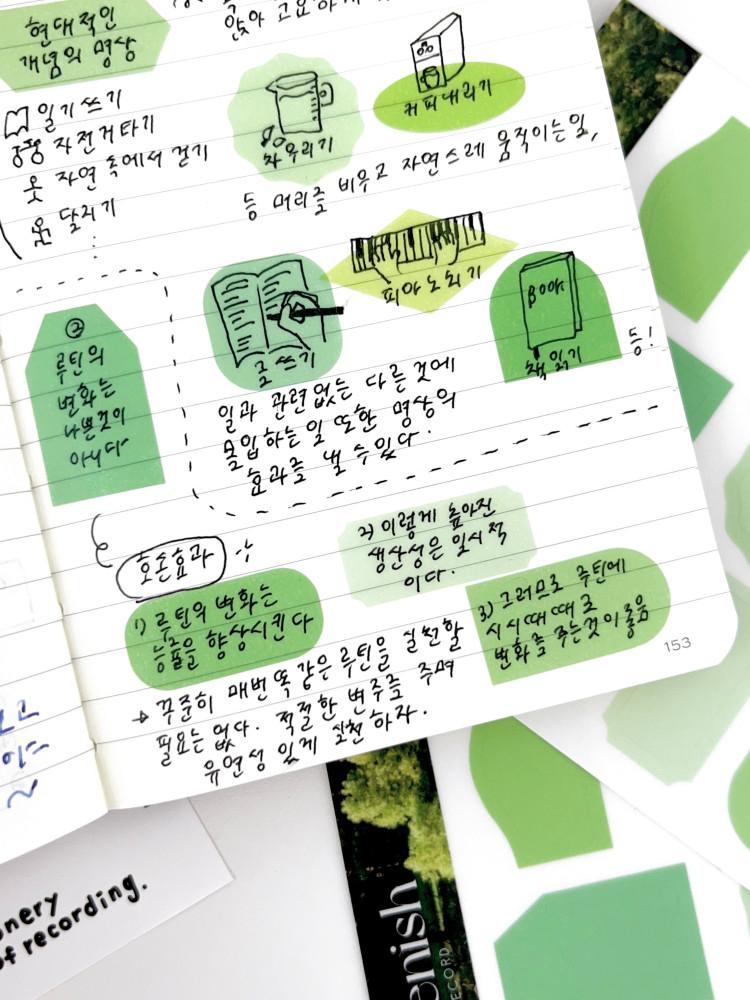 현대적인
개념의 명상
앉아 고요하게
일기쓰기
자전거타기
자연 속에서 걷기
달리기
차우리기
커피내리기
등 머리를 비우고 자연스레 움직이는일,
글쓰기
피아노치기
BOOK
책 읽기
등!
일과 관련없는 다른 것에
몰입하는일 또한 명상의
효과를 낼 수 있다.
②
루틴의
변화는
나쁜것이
아니다
호손효과
1) 루틴의 변화는
능률을 향상시킨다
2) 이렇게 높아진
생산성은 일시적
이다.
3) 그러므로 루틴에
시시때때로
변화를 주는것이 좋음
→ 꾸준히 매번 똑같은 루틴을 실천할
필요는 없다. 적절한 변주를 주며
유연성 있게 실천하자.
153
onery
of recording.
enish
RECORD